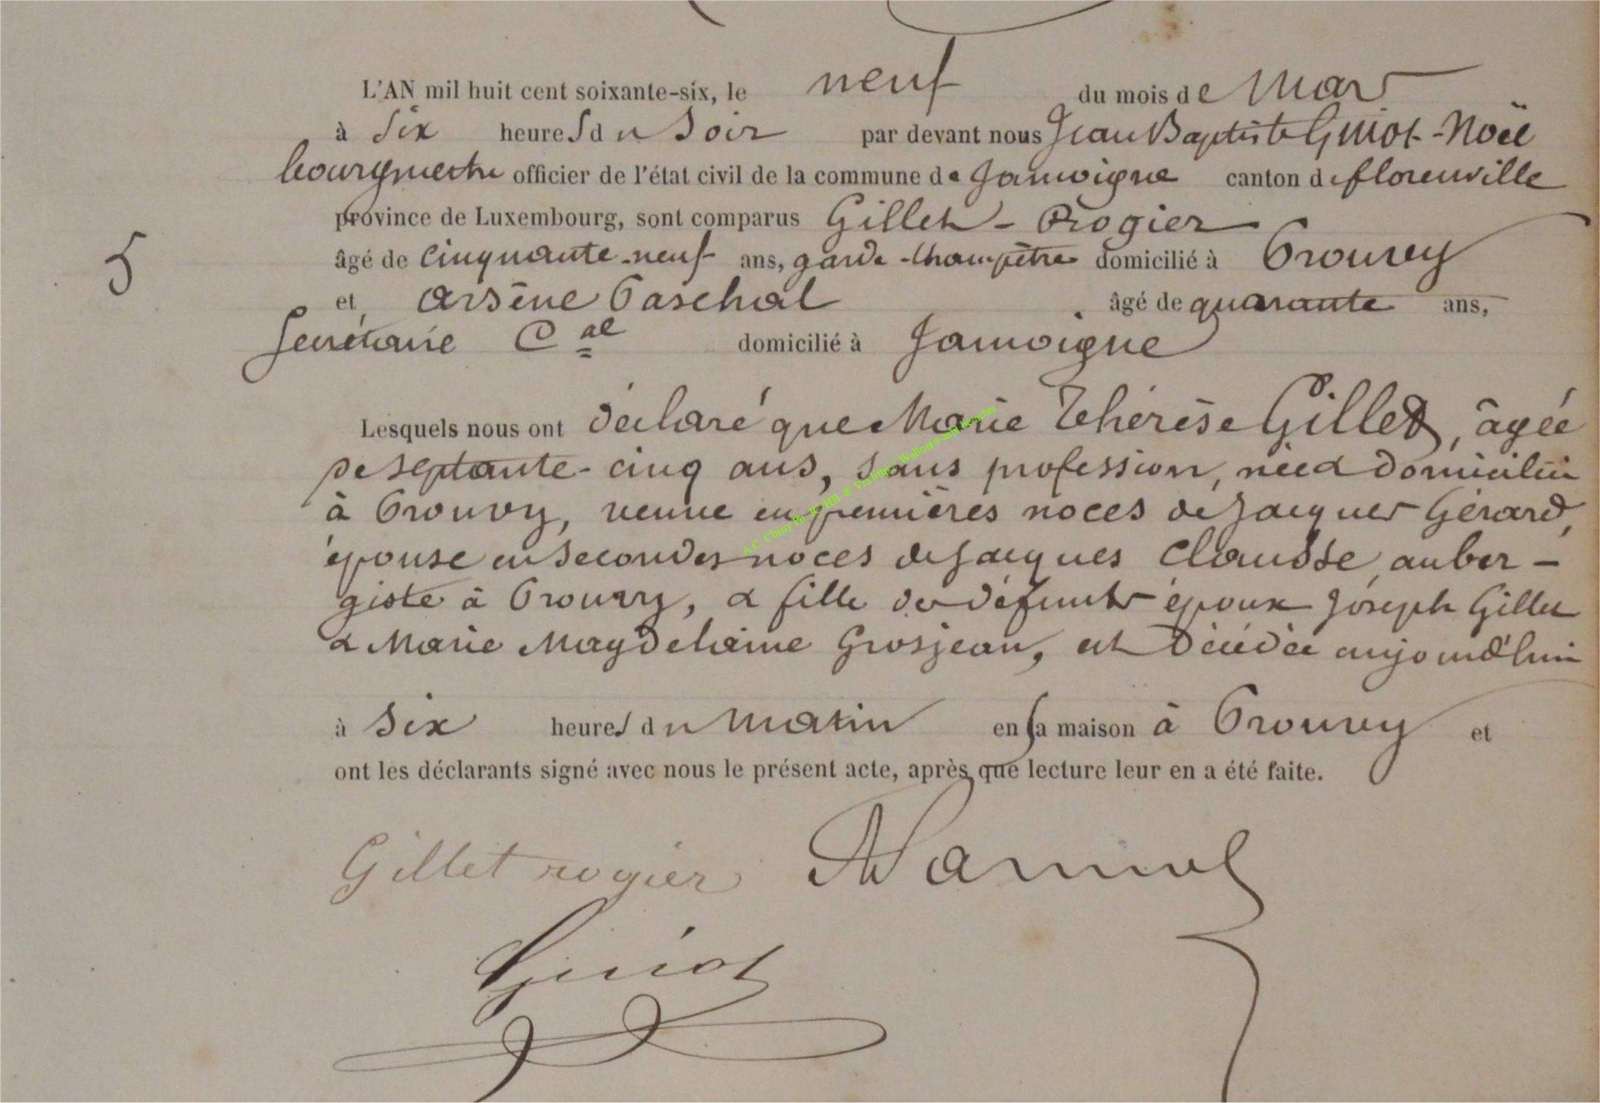 L'AN mil huit cent soixante-six, le neuf du mois de Mars
à Six heures du Soir par devant nous Jean Baptiste Guiot-Noël
bourgmestre officier de l'état civil de la commune de Jamoigne canton de florenville
province de Luxembourg, sont comparus Gillet - Rogier
âgé de cinquante-neuf ans, garde-champêtre domicilié à Prouvy
5
et arsène Paschal âgé de quarante ans,
Secrétaire Cal domicilié à Jamoigne
Lesquels nous ont déclaré que Marie Thérèse Gillet, âgée
de septante-cinq ans, sans profession, née et domiciliée
à Prouvy, veuve en premières noces de Jacques Gérard,
épouse en secondes noces de Jacques Clausse, auber-
giste à Prouvy, et fille des défunts époux Joseph Gillet
et Marie Magdelaine Grosjean, est décédée aujourd'hui
à Six heures du matin en sa maison à Prouvy et
ont les déclarants signé avec nous le présent acte, après que lecture leur en a été faite.
Gillet rogier
Guiot